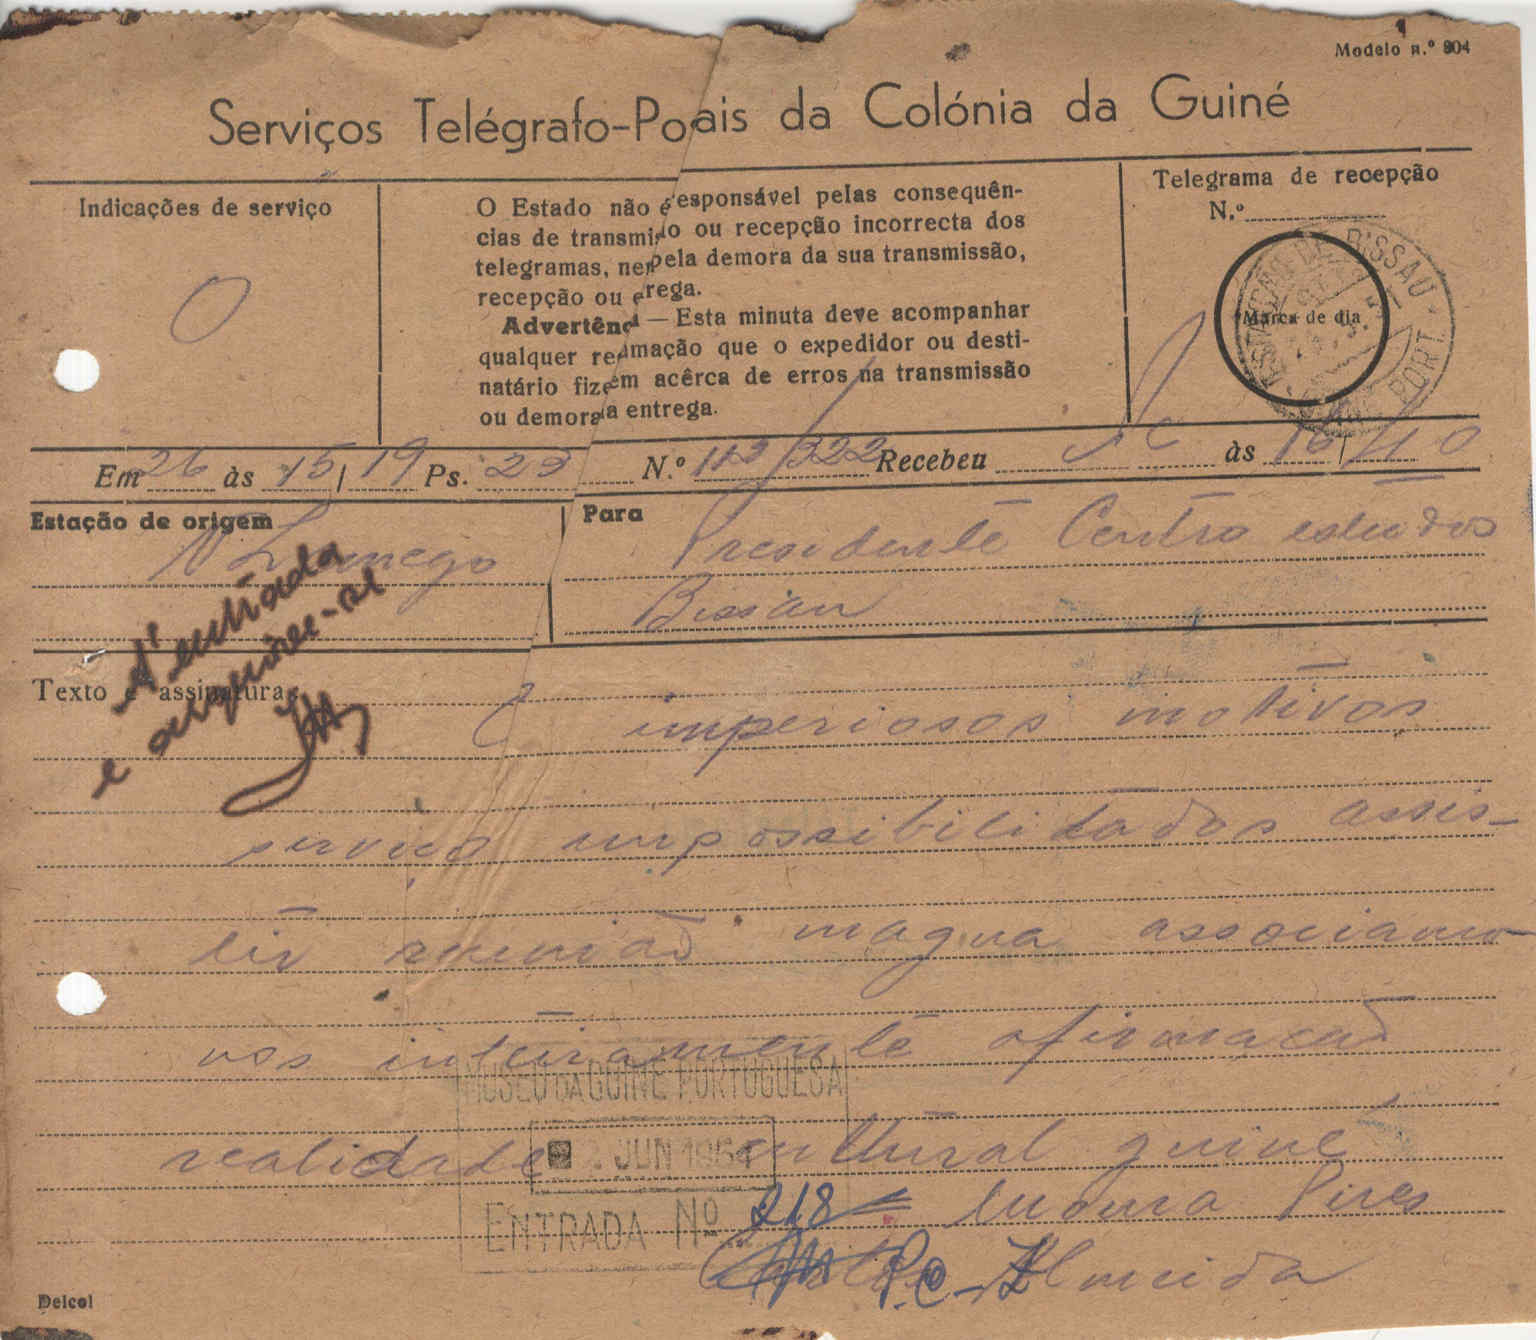 Modelo n.º 804
Serviços Telégrafo-Po ais da Colónia da Guiné
Indicações de serviço
O
O Estado não é responsável pelas consequên-
cias de transmi ão ou recepção incorrecta dos
telegramas, nem pela demora da sua transmissão,
recepção ou e rega.
Advertênc — Esta minuta deve acompanhar
qualquer re amação que o expedidor ou desti-
natário fiz em acêrca de erros na transmissão
ou demora a entrega.
Telegrama de recepção
N.º
Marca de dia
BISSAU
PORT.
Em 26 às 15/19 Ps. 23 N.º 112/322 Recebeu às 16/40
Estação de origem
N Lamego
Para
Presidente Centro estudos
Bissau
Texto e assinatura
A' entrada
e arquive-se
imperiosos motivos
serviço impossibilitados assis-
tir reunião magna associamo-
nos inteiramente afirmação
realidade cultural guiné
Moura Pires
Almeida
MUSEU DA GUINÉ PORTUGUESA
2 JUN 1951
ENTRADA Nº 218
P.C-2
Deicol